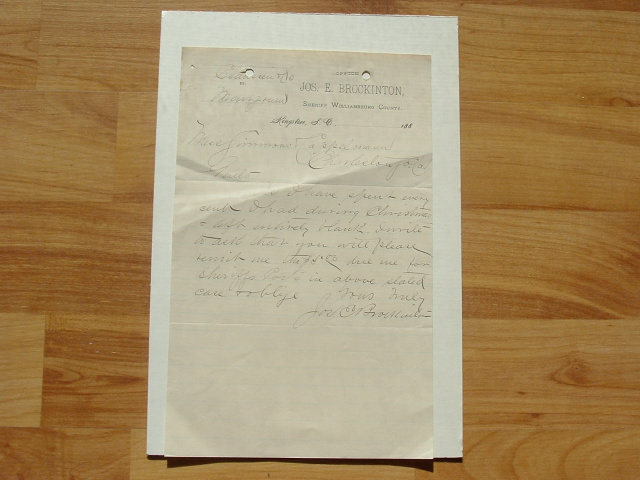 OFFICE
JOS. E. BROCKINTON,
SHERIFF WILLIAMSBURG COUNTY.
Kingstree, S. C. 188
Mess Simmons & Cappelmann
Charleston, S. C.
Gents
I have spent every
cent I had during Christmas
& left entirely blank. I write
to ask that you will please
remit me the due me for
Sheriffs Costs in above stated
case & oblige Yours Truly
Jos E Brockinton